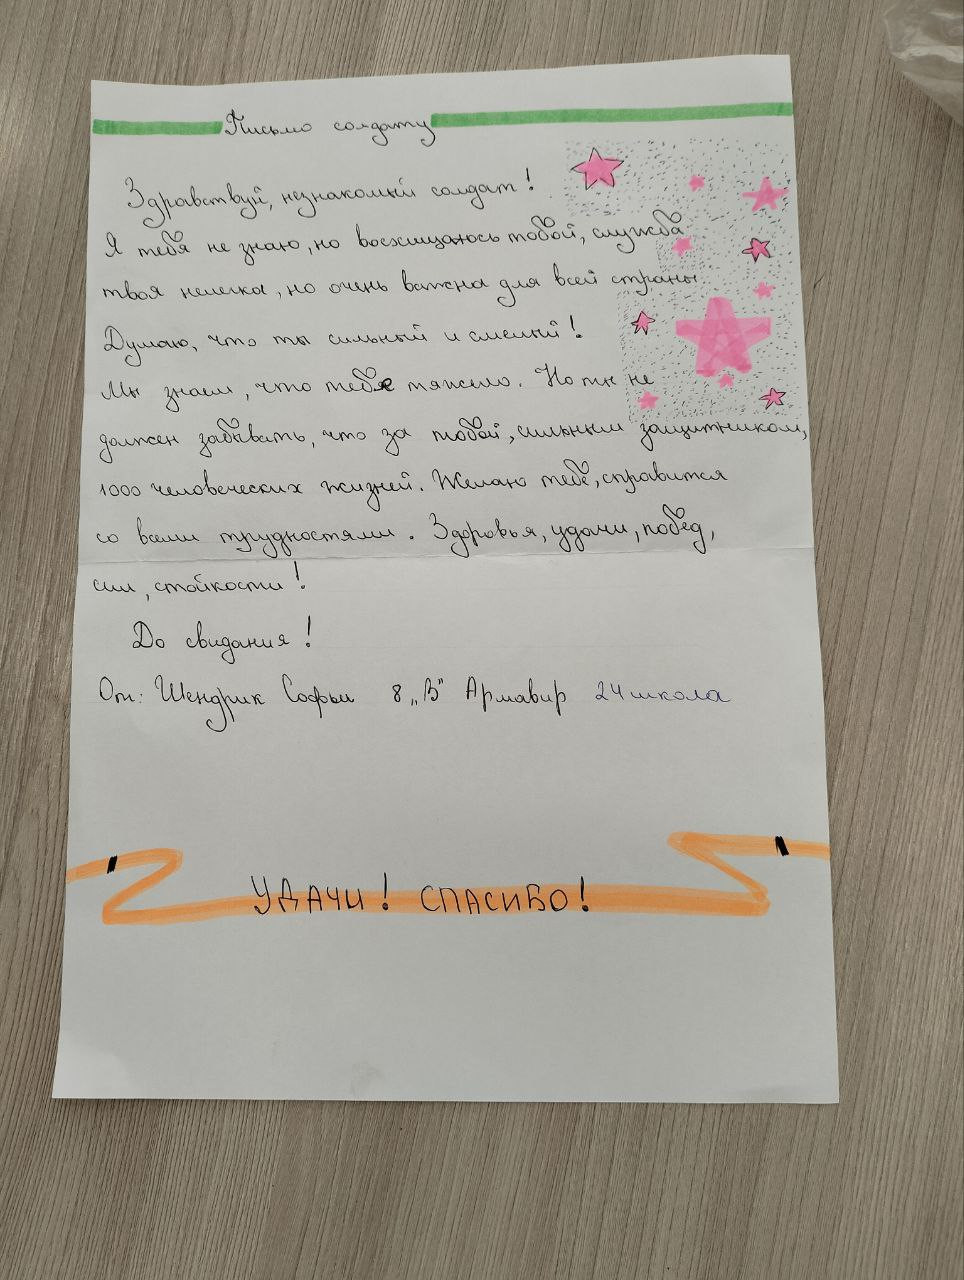 Письмо солдату
Здравствуй, незнакомый солдат!
Я тебя не знаю, но восхищаюсь тобой, служба
твоя нелегка, но очень важна для всей страны
Думаю, что ты сильный и смелый!
Мы знаем, что тебе тяжело. Но ты не
должен забывать, что за тобой, сильным защитником,
1000 человеческих жизней. Желаю тебе, справится
со всеми трудностями. Здоровья, удачи, побед,
сил, стойкости!
До свидания!
От: Шендрик Софьи 8 „В" Армавир 24 школа
УДАЧИ! СПАСИБО!